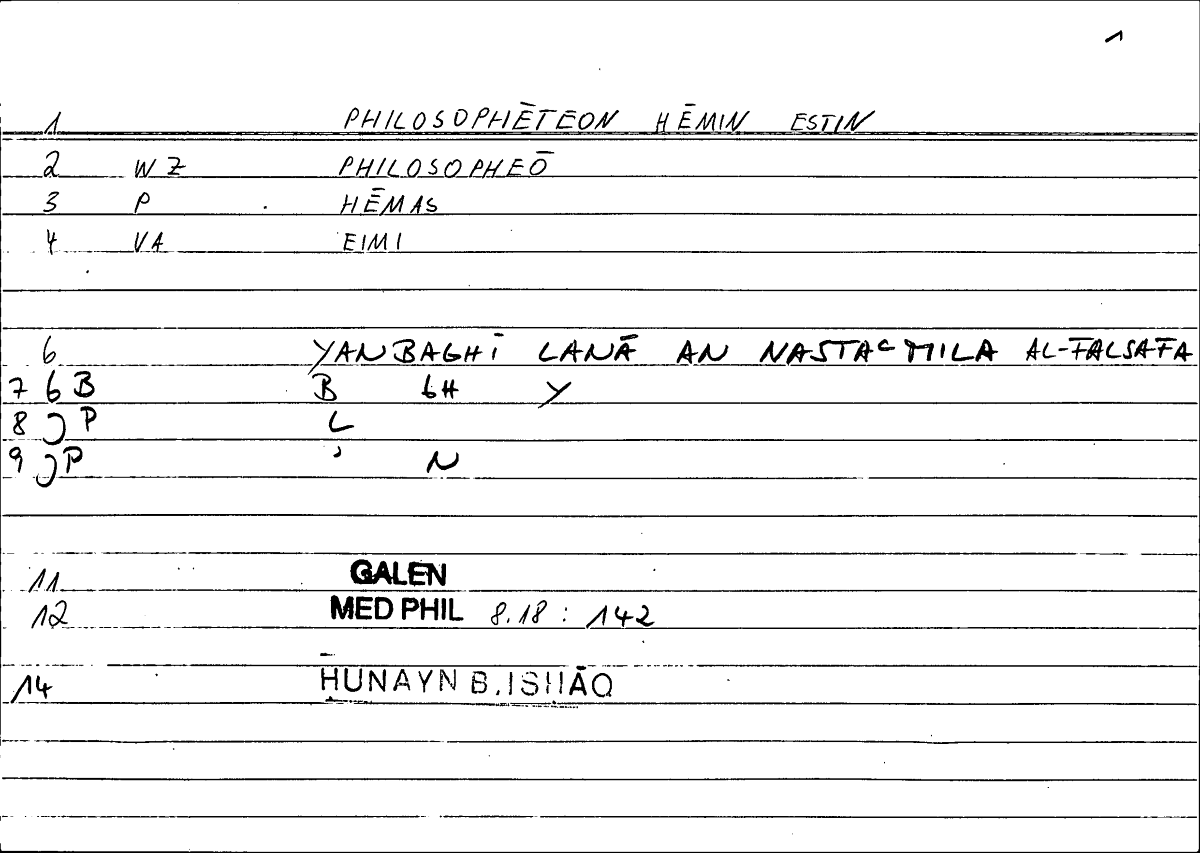 1
1 PHILOSOPHĒTEON HĒMIN ESTIN
2 WZ PHILOSOPHEŌ
3 P HĒMAS
4 VA EIMI
6 YANBAGHĪ LANĀ AN NASTAᶜMILA AL-FALSAFA
7 6 B B GH Y
8 P L
9 P ʾ N
11 GALEN
12 MED PHIL 8.18 : 142
14 ḤUNAYN B. ISḤĀQ